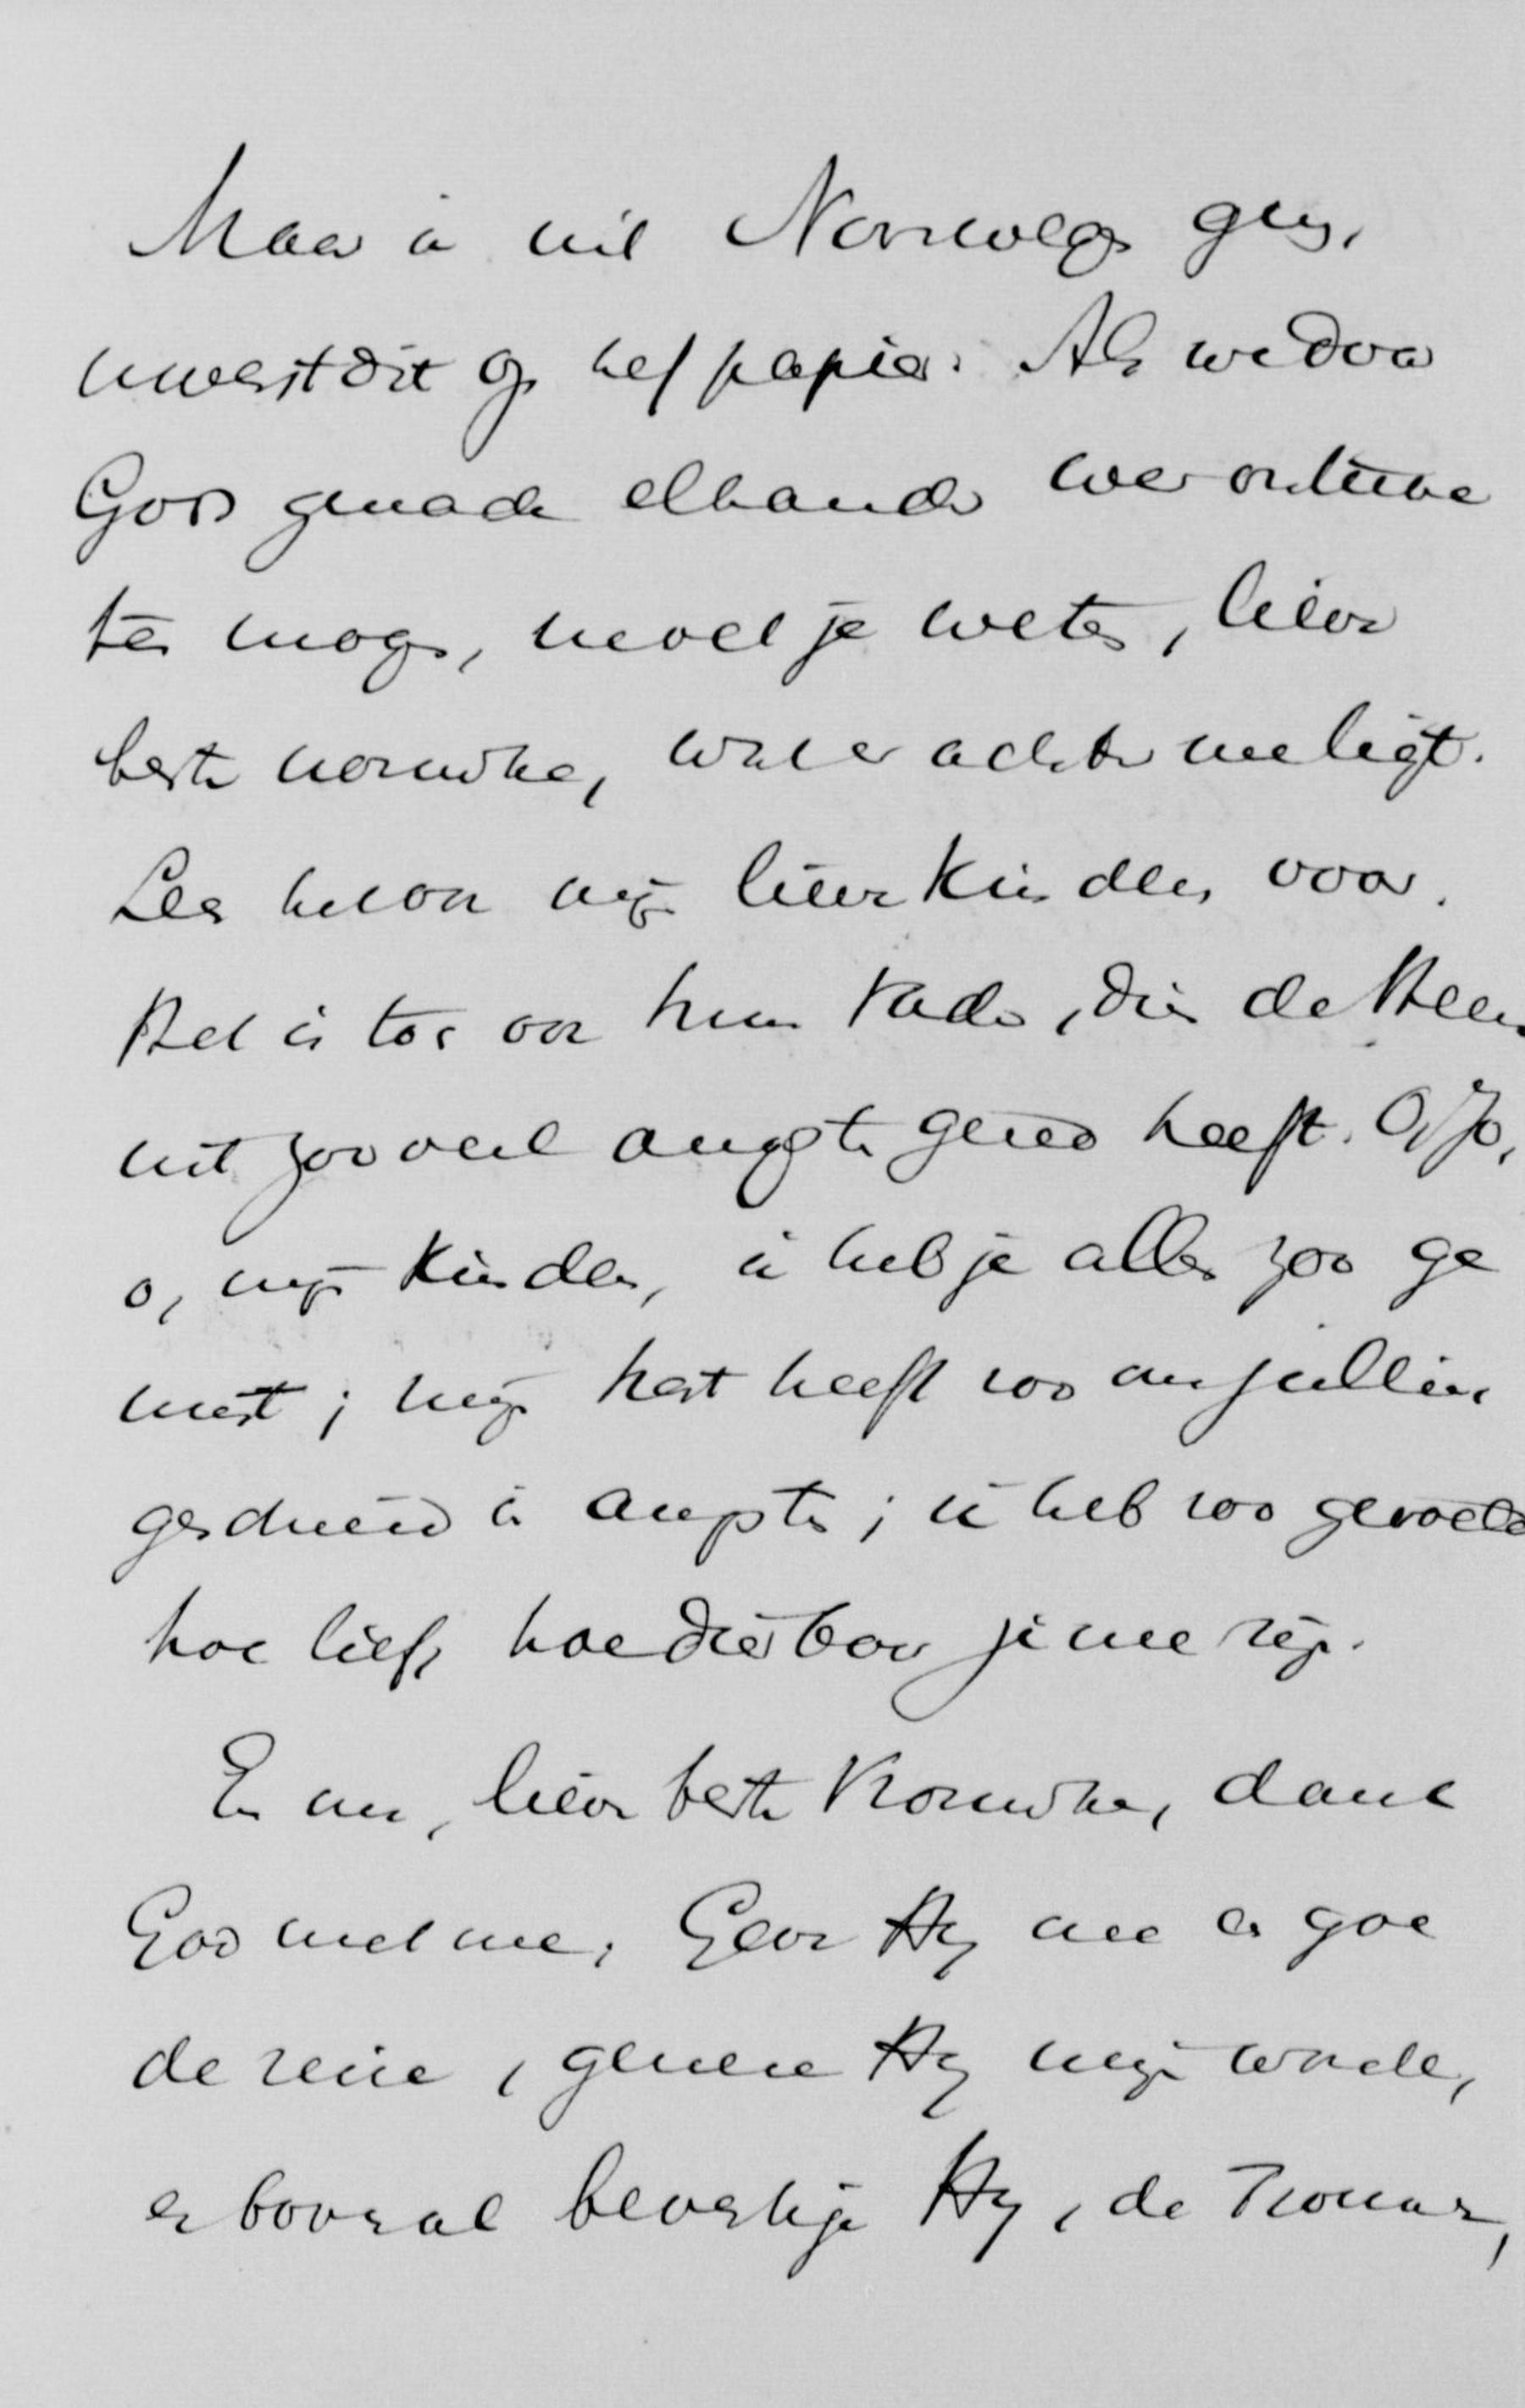 Maar ik uit Noorwegen ging,
moest dit op het papier. Als we door
Gods genade elkander weer ontmoe
ten mogen, moet je weten, lieve
beste vrouwke, wat er achter me ligt.
Lees het ook mijn lieve kinderen voor.
Het is toch ook hun Vader, dien de Heer
uit zooveel angsten gered heeft. O, Jo,
o, mijn kinderen, ik heb je allen zoo ge
mist; mijn hart heeft zoo om jullie
geschreid in angsten; ik heb zoo gevoeld
hoe lief, hoe dierbaar je me zijn.
En nu, lieve beste Vrouwke, dank
God met me. Geve Hij me een goe
de reize, geneze Hij mijn wonde,
en bovenal bevestige Hij, de Trouwe,